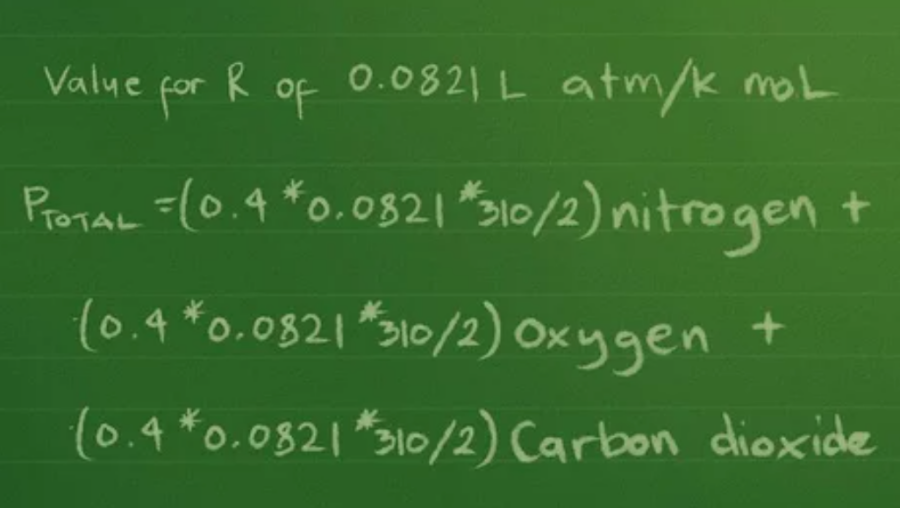 Value for R of 0.0821 L atm/k moL
PTOTAL =(0.4 *0.0821 *310/2) nitrogen +
(0.4 *0.0821 *310/2) Oxygen +
(0.4 *0.0821 *310/2) Carbon dioxide